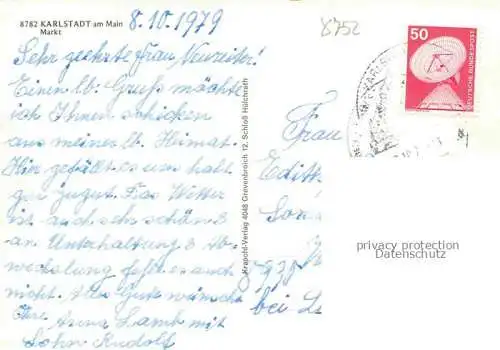 8782 KARLSTADT am Main
Markt
8.10.1979
8752
Sehr geehrte Frau Neureiter!
Einen lb. Gruß möchte
ich Ihnen schicken
aus meiner lb. Heimat.
Hier gefällt es uns halt
gar zu gut. Das Wetter
ist auch sehr schön &
an Unterhaltung & Ab-
wechslung fehlt es auch
nicht. Alles Gute wünscht
Ihre Anna Lamb mit
Sohn Rudolf
Krapohl-Verlag 4048 Grevenbroich 12, Schloß Hülchrath
50
DEUTSCHE BUNDESPOST
Frau
Edith
bei
privacy protection
Datenschutz